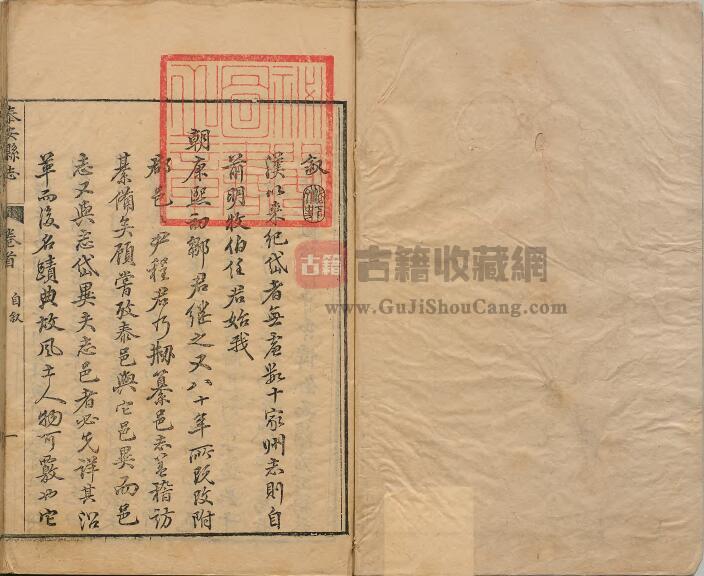 叙
漢以來紀岱者無慮數十家州志則自
前明牧伯任君始我
朝康熙初鄒君繼之又八十年所既改附
郡邑 尹程君乃刱纂邑志蓋稽訪
綦備矣顧嘗攷泰邑與它邑異而邑
志又與志岱異夫志邑者必先詳其沿
革而後名蹟典故風土人物可覈也它
泰安縣志
卷首
自叙
一
古籍
古籍收藏網
www.GuJiShouCang.com